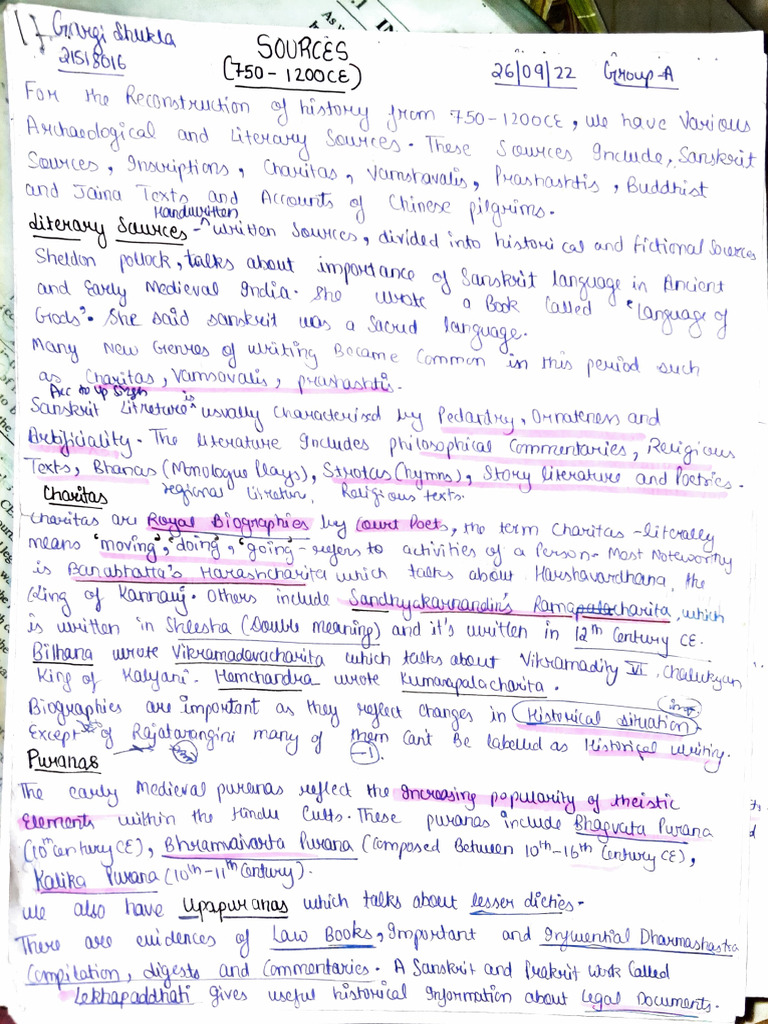 17 Gargi Shukla
21518016
SOURCES
(750-1200CE)
26/09/22 Group-A
For the Reconstruction of history from 750-1200CE, we have Various
Archaeological and Literary Sources. These Sources Include, Sanskrit
Sources, Inscriptions, Charitas, Vamshavalis, Prashashtis, Buddhist
and Jaina Texts and Accounts of Chinese pilgrims.
Handwritten
Literary Sources - ^ written Sources, divided into historical and fictional Sources
Sheldon pollock, talks about importance of Sanskrit language in Ancient
and Early Medieval India. She wrote a Book Called "Language of
Gods". She said sanskrit was a Sacred language.
Many New Genres of writing Became Common in this period such
as Charitas, Vamsavalis, prashashtis.
Acc to Up Singh
Sanskrit Litreture ^ is usually Characterised by Pedardry, Ornateness and
Artificiality. The literature Includes philosophical Commentaries, Religious
Texts, Bhanas (Monologue Plays), Strotas (hymns), Story literature and Poetries.
regional literature, Religious texts.
Charitas
Charitas are Royal Biographies by Court Poets, the term Charitas - literally
means 'moving', 'doing', 'going' - refers to activities of a Person. Most Noteworthy
is Banabhatta's Harashcharita which talks about Harshavardhana, the
King of Kannauj. Others include Sandhyakarnandin's Ramapalacharita, which
is written in Shlesha (Double meaning) and it's written in 12th Century CE.
Bilhana wrote Vikramadevacharita which talks about Vikramadity VI, Chalukyan
King of Kalyani. Hemchandra wrote Kumarapalacharita.
Biographies are important as they reflect changes in Historical situation. (imp)
Except of Rajatarangini many of them can't Be labelled as Historical writing.
Puranas
The early Medieval puranas reflect the Increasing popularity of theistic
Elements within the Hindu Cults. These puranas include Bhagvata Purana
(10th Century CE), Bhramaivarta Purana (Composed Between 10th-16th Century CE),
Kalika Purana (10th-11th Century).
We also have Upapuranas which talks about lesser dieties.
There are evidences of Law Books, Important and Influential Dharmashastra
Compilation, digests and Commentaries. A Sanskrit and Prakrit work Called
Lekhapaddhati gives useful historical Information about Legal Documents.